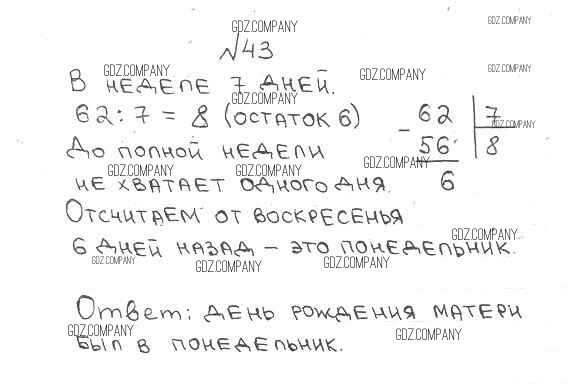 GDZ.COMPANY
GDZ.COMPANY
№43
GDZ.COMPANY
GDZ.COMPANY
GDZ.COMPANY
В НЕДЕЛЕ 7 ДНЕЙ.
GDZ.COMPANY
62 : 7 = 8 (ОСТАТОК 6)
- 62 | 7
GDZ.COMPANY
56 | 8
6
ДО ПОЛНОЙ НЕДЕЛИ
GDZ.COMPANY
GDZ.COMPANY
GDZ.COMPANY
НЕ ХВАТАЕТ ОДНОГО ДНЯ.
ОТСЧИТАЕМ ОТ ВОСКРЕСЕНЬЯ
GDZ.COMPANY
6 ДНЕЙ НАЗАД – ЭТО ПОНЕДЕЛЬНИК.
GDZ.COMPANY
GDZ.COMPANY
GDZ.COMPANY
Ответ: ДЕНЬ РОЖДЕНИЯ МАТЕРИ
GDZ.COMPANY
GDZ.COMPANY
БЫЛ В ПОНЕДЕЛЬНИК.